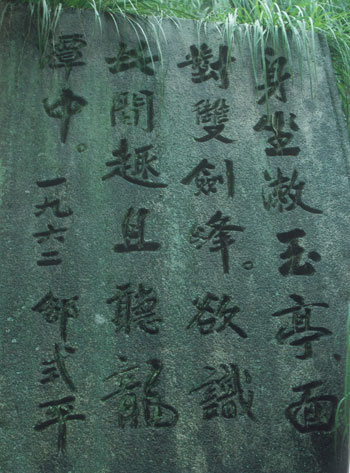 身坐漱玉亭、面
對雙劍峰。欲識
此間趣且聽龍
潭中。
一九六二 邹弍平